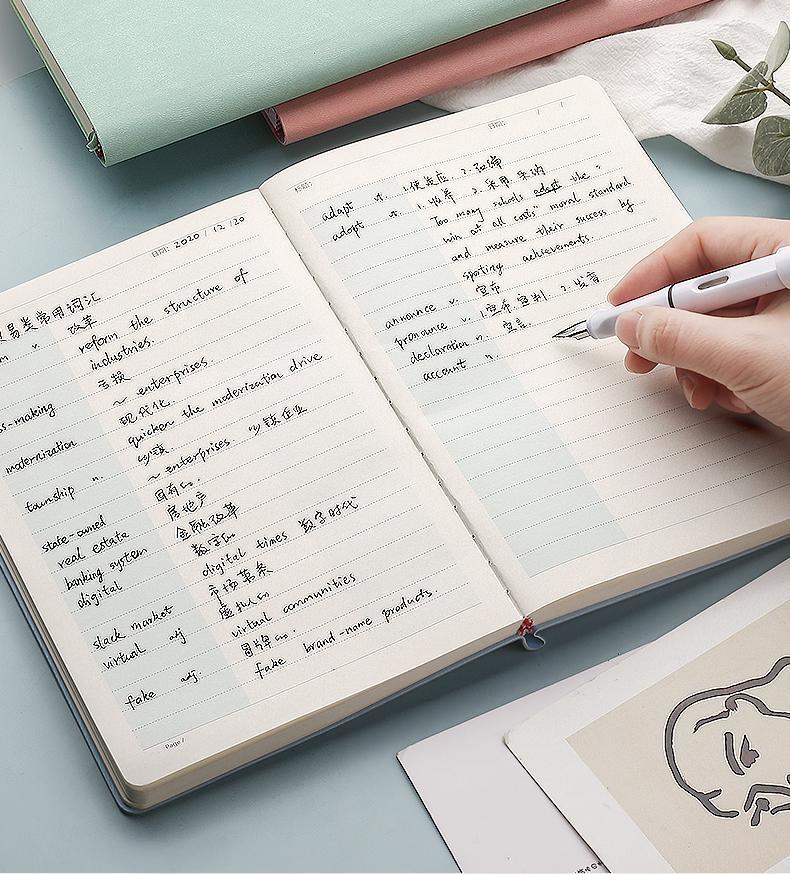 日期: 2020 / 12 / 20
贸易类常用词汇
m v. 改革
reform the structure of
industries.
ss-making 亏损
~ enterprises.
modernization 现代化
quicken the modernization drive
township n. 乡镇
~ enterprises 乡镇企业
state-owned 国有的
real estate 房地产
banking system 金融改革
digital 数字的
digital times 数字时代
slack market 市场萧条
virtual adj 虚拟的
virtual communities
fake adj. 冒牌的
fake brand-name products.
Page /
日期: / /
adapt vt. 1.使适应 2.改编
adopt vt. 1.收养 2.采用 采纳
Too many schools adopt the "
win at all costs" moral standard
and measure their success by
sporting achievements.
announce v. 宣布
pronounce v. 1.宣布 宣判. 2.发音
declaration n. 宣言.
account n.